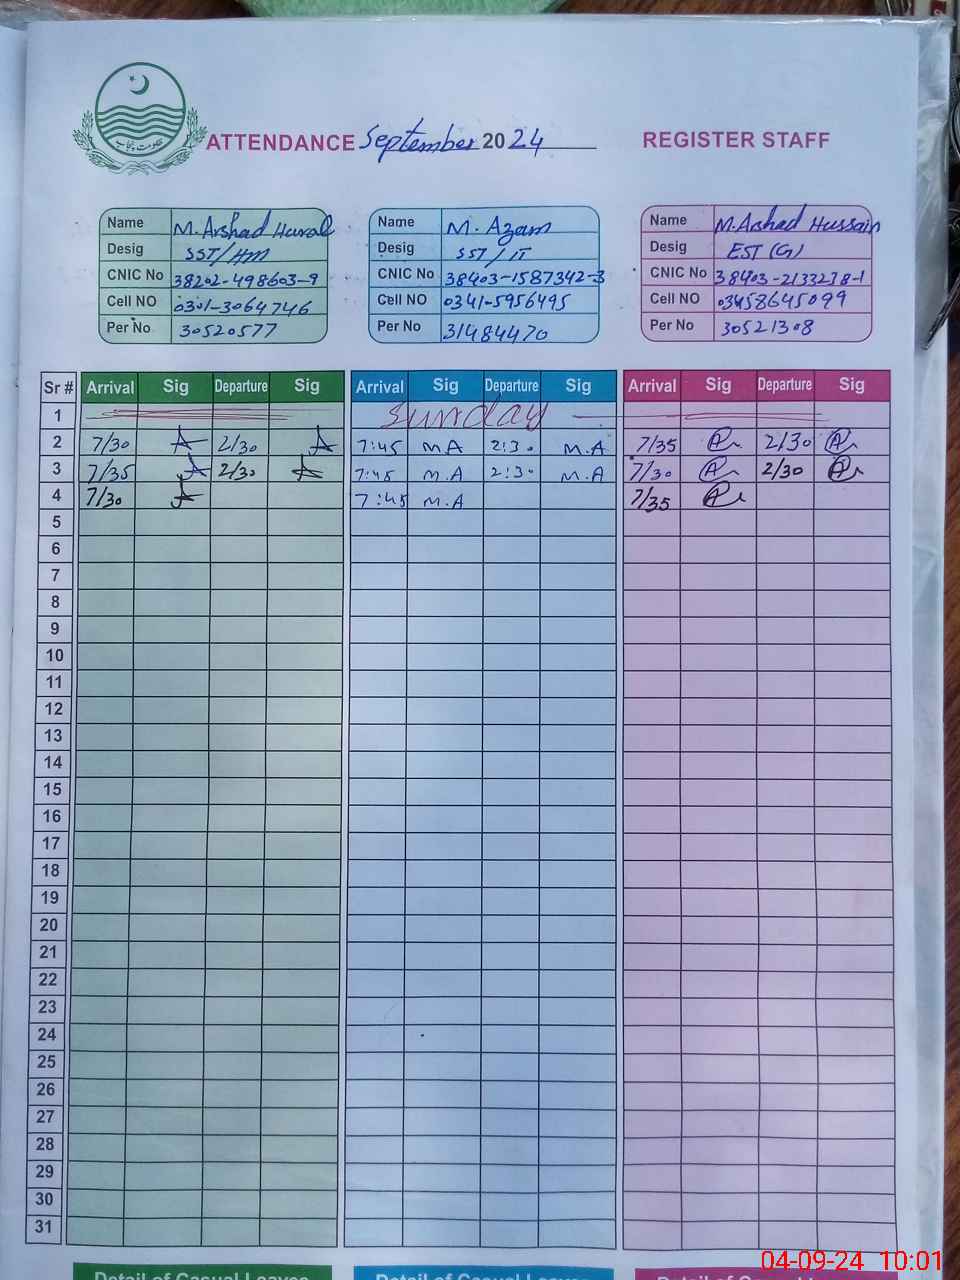 حکومت پنجاب
ATTENDANCE September 2024 REGISTER STAFF
Name M. Arshad Haral
Desig SST/HM
CNIC No 38202-498603-9
Cell NO 0301-3064746
Per No 30520577
Name M. Azam
Desig SST/IT
CNIC No 38403-1587342-3
Cell NO 0341-5956495
Per No 31484470
Name M. Arshad Hussain
Desig EST (G)
CNIC No 38403-2133238-1
Cell NO 03458645099
Per No 30521308
Sr # Arrival Sig Departure Sig Arrival Sig Departure Sig Arrival Sig Departure Sig
1 Sunday
2 7/30 A 2/30 A 7:45 M.A 2:30 M.A 7/35 2/30
3 7/35 A 2/30 A 7:45 M.A 2:30 M.A 7/30 2/30
4 7/30 A 7:45 M.A 7/35
5
6
7
8
9
10
11
12
13
14
15
16
17
18
19
20
21
22
23
24
25
26
27
28
29
30
31
Detail of Casual Leaves Detail of Casual Leaves Detail of Casual
04-09-24 10:01